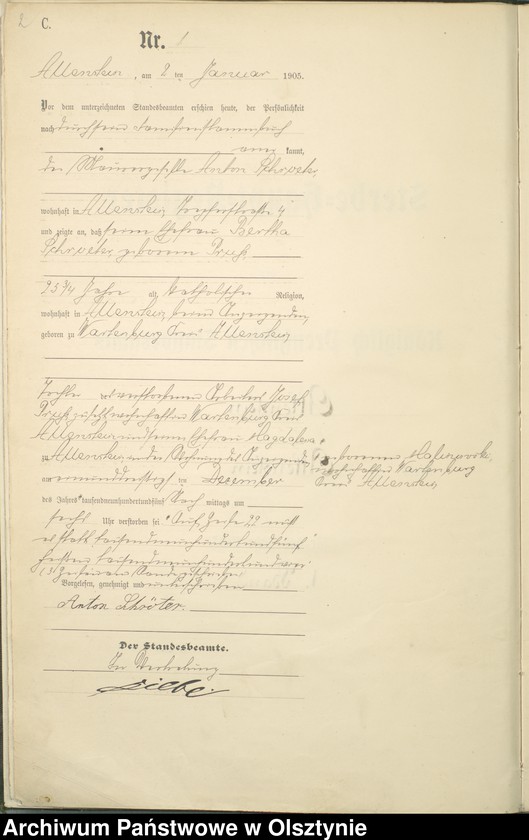 2 C.
Nr. 1
Allenstein, am 2 ten Januar 1905.
Vor dem unterzeichneten Standesbeamten erschien heute, der Persönlichkeit
nach durch
kannt,
der Maurergeselle Anton Schroeter,
wohnhaft in Allenstein, 4
und zeigte an, daß seine Ehefrau Bertha
Schroeter, geborene Preuß
Jahre alt, katholischer Religion,
wohnhaft in Allenstein, beim Anzeigenden,
geboren zu Wartenburg Kreis Allenstein,
Tochter des verstorbenen Arbeiters Josef
Preuß zuletzt wohnhaft in Wartenburg Kreis
Allenstein und seiner Ehefrau Magdalena
geborenen
wohnhaft in Wartenburg
Kreis Allenstein
zu Allenstein in der Wohnung des Anzeigenden
am einunddreißigsten Dezember
des Jahres tausendneunhundertundfünf Nachmittags um
sechs Uhr verstorben sei. Auf Zeile 22 muß
es statt tausendneunhundertundfünf
heißen tausendneunhundertundvier
Vorgelesen, genehmigt und unterschrieben
Anton Schröter.
Der Standesbeamte.
In Vertretung
Archiwum Państwowe w Olsztynie